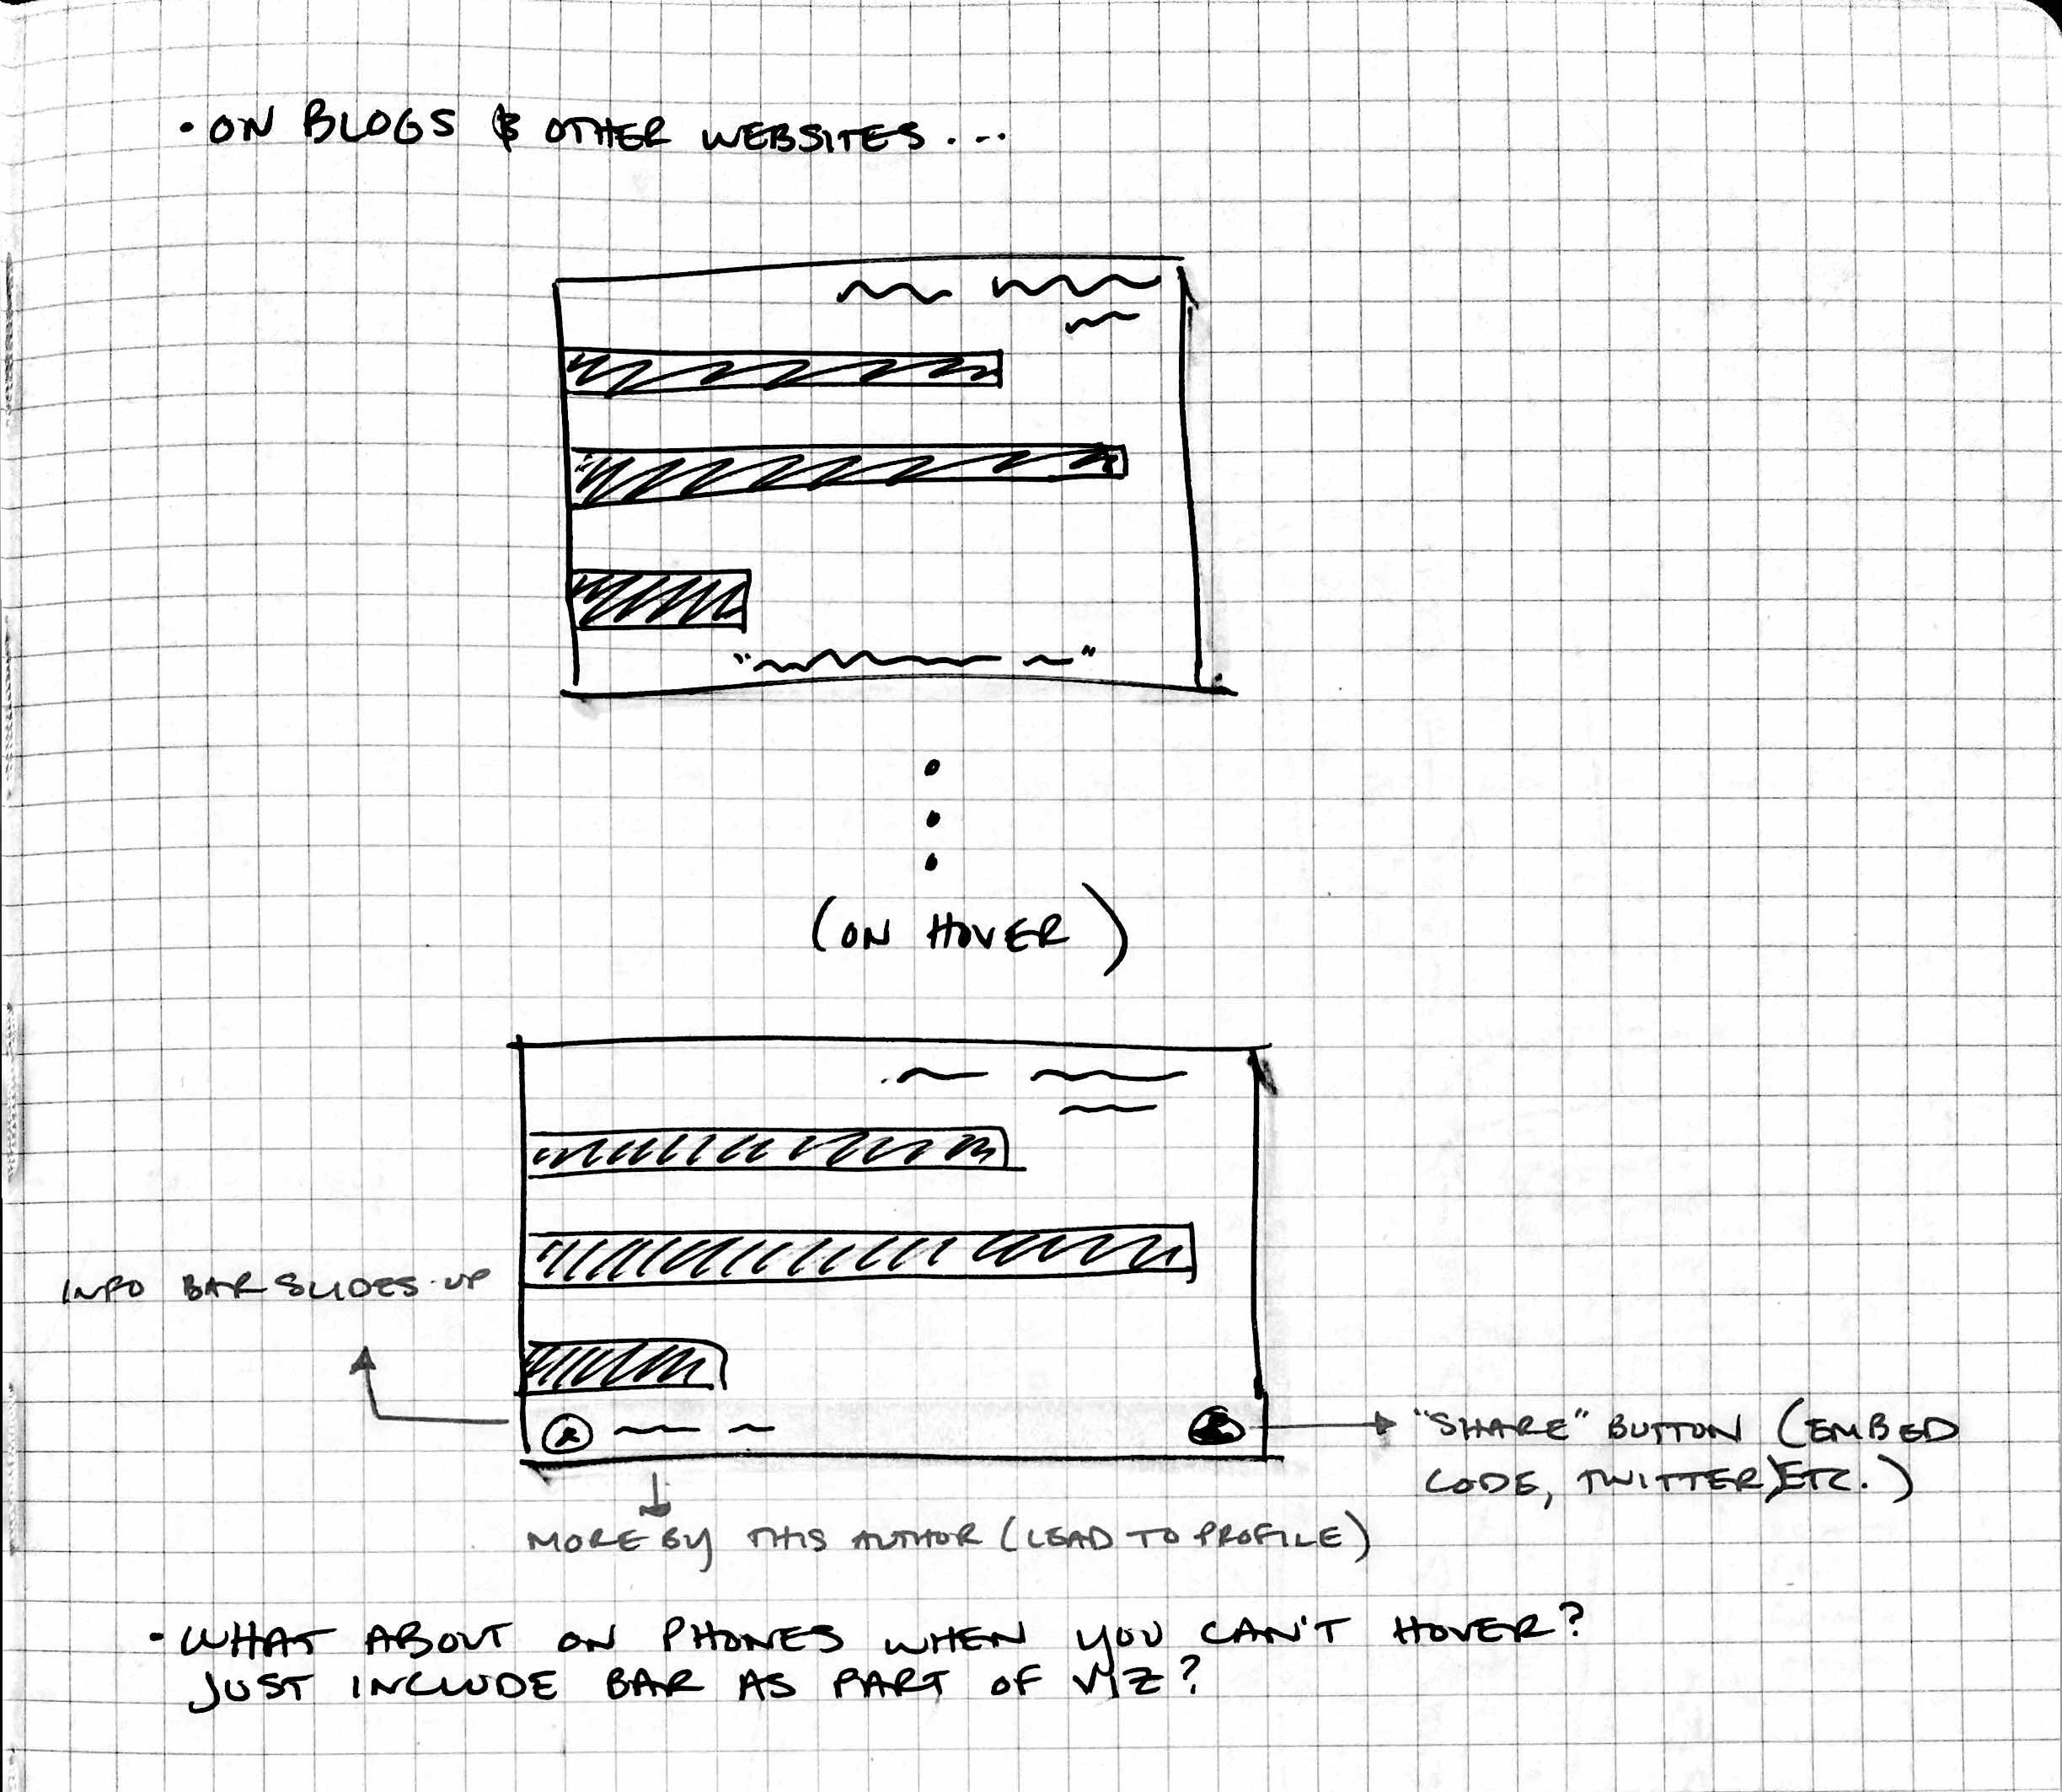 • ON BLOGS & OTHER WEBSITES...
(ON HOVER)
INFO BAR SLIDES UP
"SHARE" BUTTON (EMBED
CODE, TWITTER, ETC.)
MORE BY THIS AUTHOR (LEAD TO PROFILE)
• WHAT ABOUT ON PHONES WHEN YOU CAN'T HOVER?
JUST INCLUDE BAR AS PART OF VIZ?